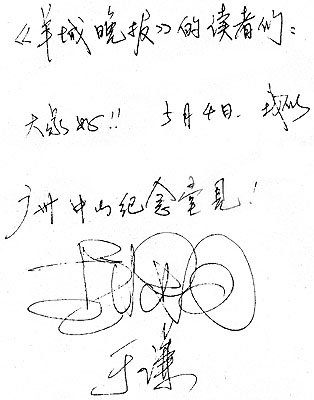 《羊城晚报》的读者们：
大家好!! 5月4日.我们
广州中山纪念堂见！
于谦